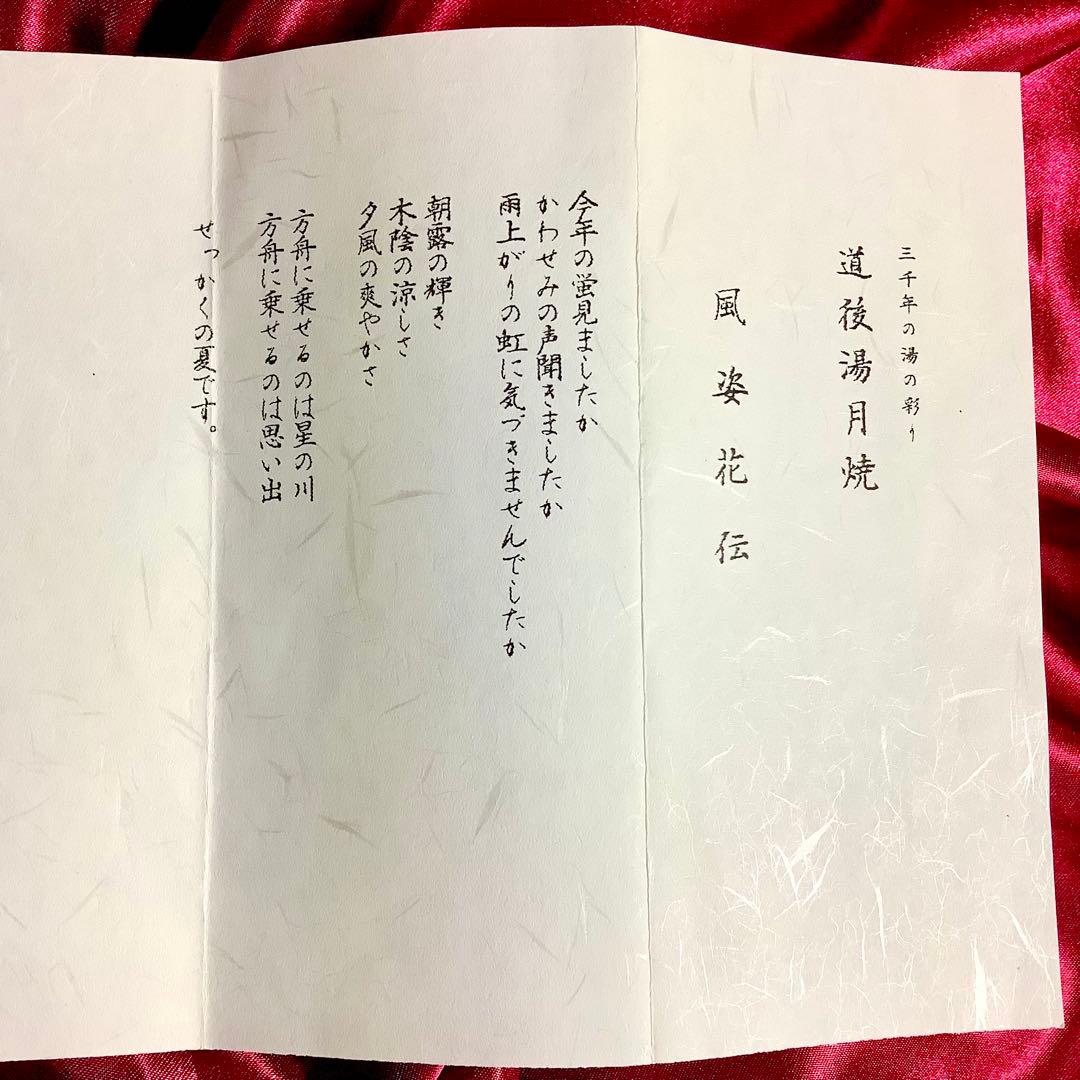 三千年の湯の彩り
道後湯月焼
風姿花伝
今年の蛍見ましたか
かわせみの声聞きましたか
雨上がりの虹に気づきませんでしたか
朝露の輝き
木陰の涼しさ
夕風の爽やかさ
方舟に乗せるのは星の川
方舟に乗せるのは思い出
せっかくの夏です。